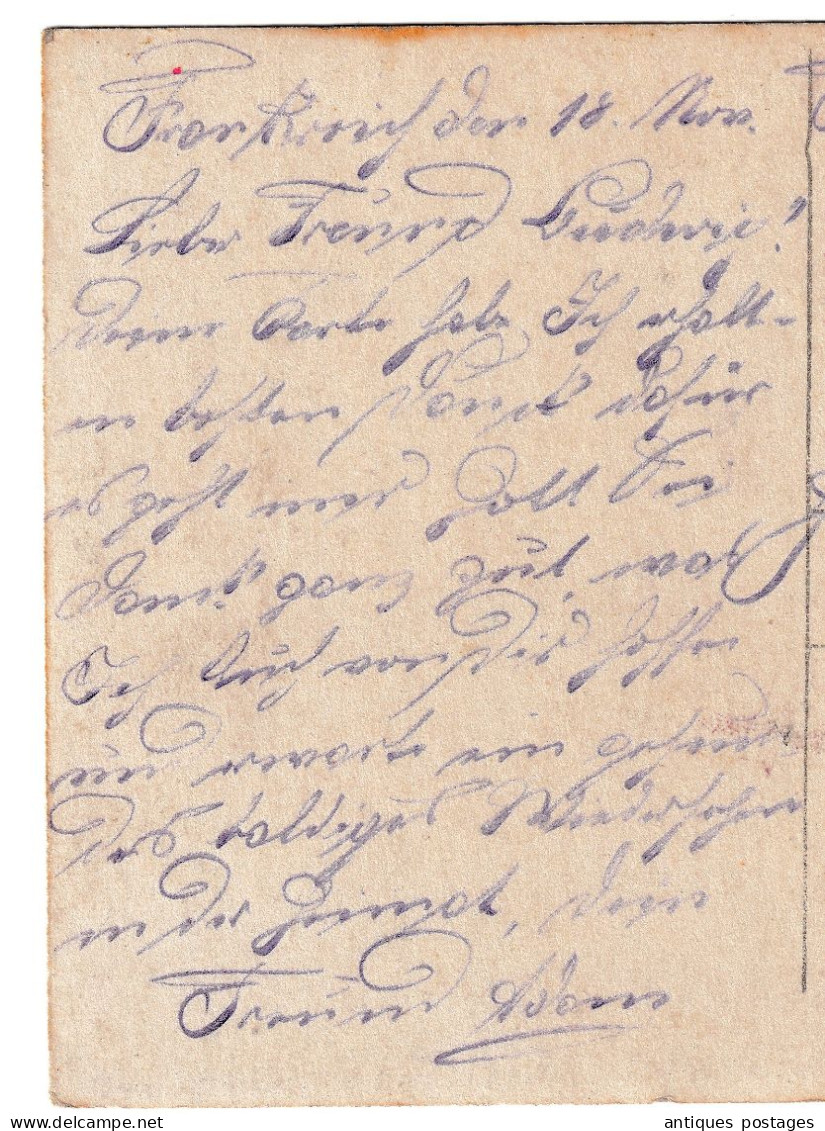 Frankreich den 18. Nov.
Lieber Freund Ludwig!
Deine Karte habe Ich erhalt-
en besten Dank dafür
es geht mir Gott sei
Dank ganz gut, was
Ich auch von Dir hoffe
und erwarte ein gesun
des baldiges Wiedersehen
in der Heimat, Dein
Freund Adam
antiques postages